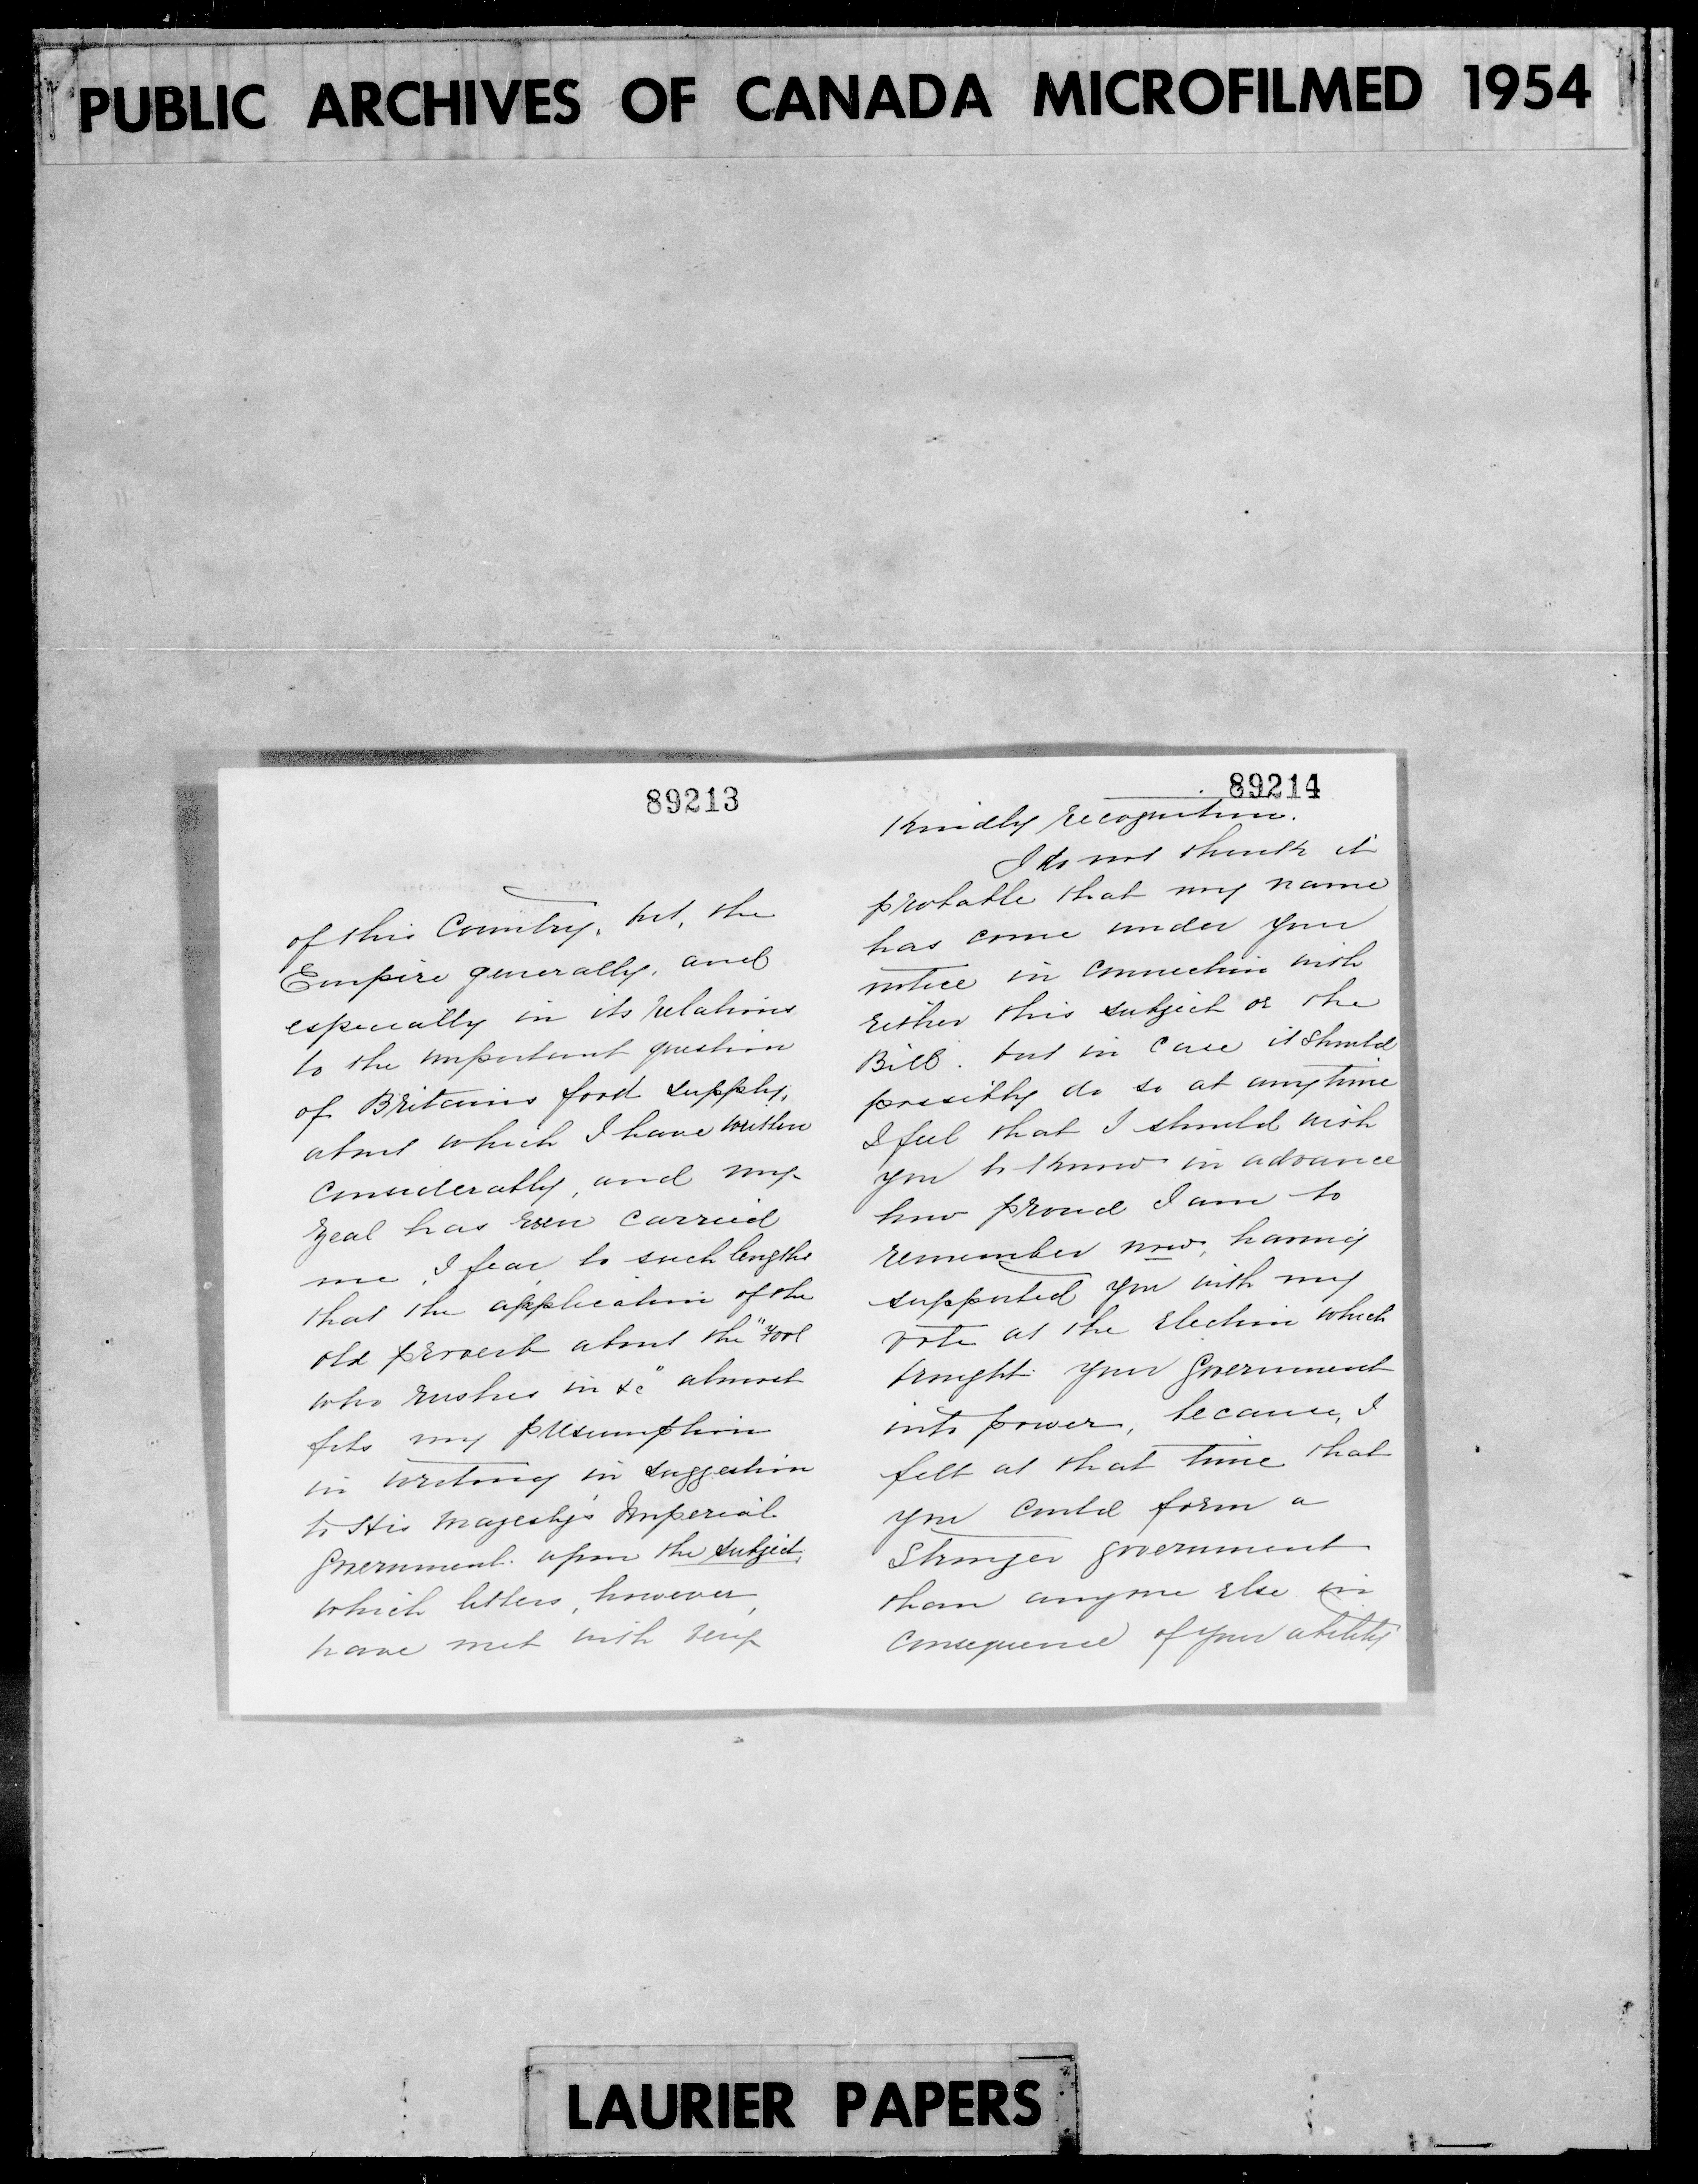 PUBLIC ARCHIVES OF CANADA MICROFILMED 1954
89213
of this Country, but, the
Empire generally, and
especially in its relations
to the important question
of Britains food supply,
about which I have written
considerably, and my
zeal has even carried
me, I fear, to such lengths
that the application of the
old proverb about the "Fool
who rushes in &c" almost
fits my presumption
in writing in suggestion
to His Majesty's Imperial
Government upon the subject,
which letters, however,
have met with very
89214
kindly recognition.
I do not think it
probable that my name
has come under your
notice in connection with
either this subject or the
Bill. but in case it should
possibly do so at anytime
I feel that I should wish
you to know in advance
how proud I am to
remember now, having
supported you with my
vote at the election which
brought your Government
into power, because, I
felt at that time that
you could form a
Stronger government
than anyone else in
consequence of your ability
LAURIER PAPERS